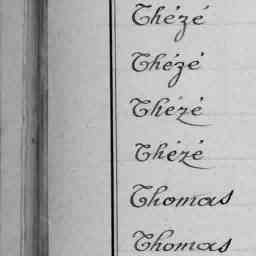 Thézé
Thézé
Thézé
Thézé
Thomas
Thomas